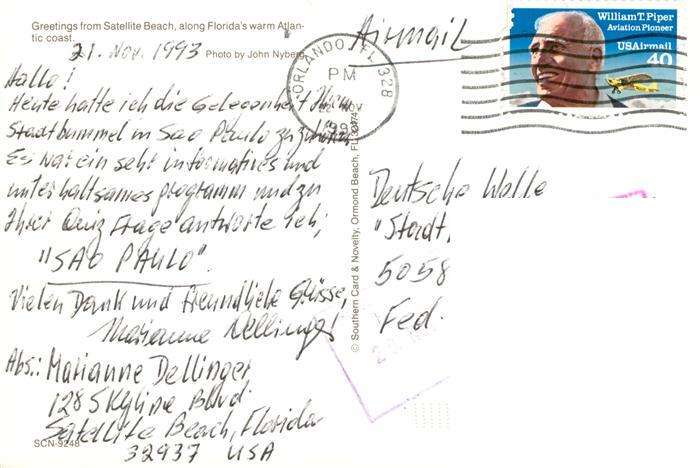 Greetings from Satellite Beach, along Florida's warm Atlan-
tic coast.
Photo by John Nyberg
21. Nov. 1993
Hallo!
Heute hatte ich die Gelegenheit Ihrem
Stadtbummel in Sao Paulo zuzuhören
Es war ein sehr informatives und
unterhaltsames programm und zu
Ihrer Quiz Frage antworte ich;
"SAO PAULO".
Vielen Dank und freundliche Grüsse,
Marianne Dellinger
Abs.: Marianne Dellinger
128 Skyline Blvd.
Satellite Beach, Florida
32937 USA
SCN-9248
© Southern Card & Novelty, Ormond Beach, FL 32174
Airmail
ORLANDO, FL 328
PM
NOV
William T. Piper
Aviation Pioneer
USAirmail
40
Deutsche Welle
"Stadt,
5058
Fed.